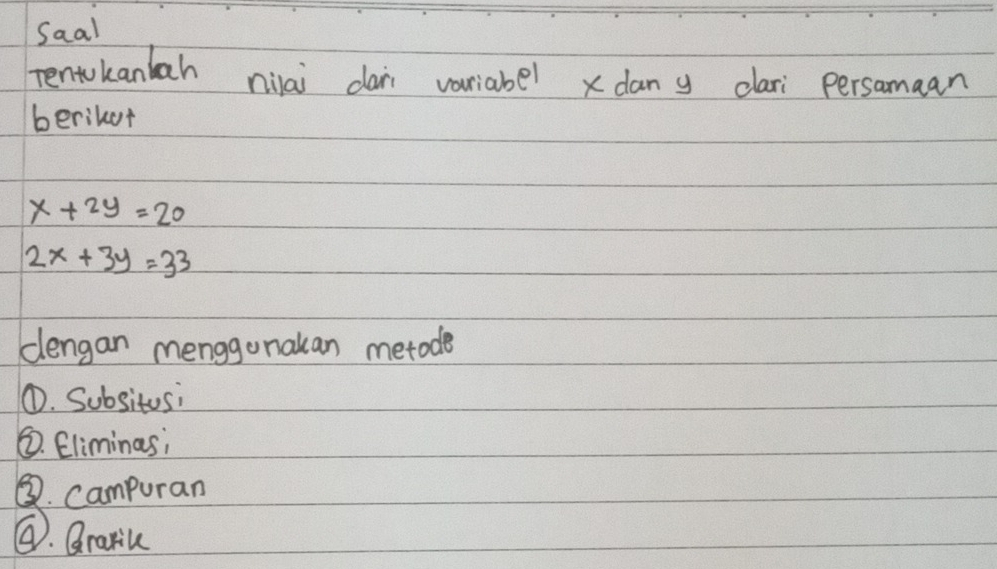 Soal
Tentukanlah nilai dari variabel x dan y dari Persamaan
berikut
x + 2y = 20
2x + 3y = 33
dengan menggunakan metode
①. Subsitusi
②. Eliminasi
③. Campuran
④. Grafik